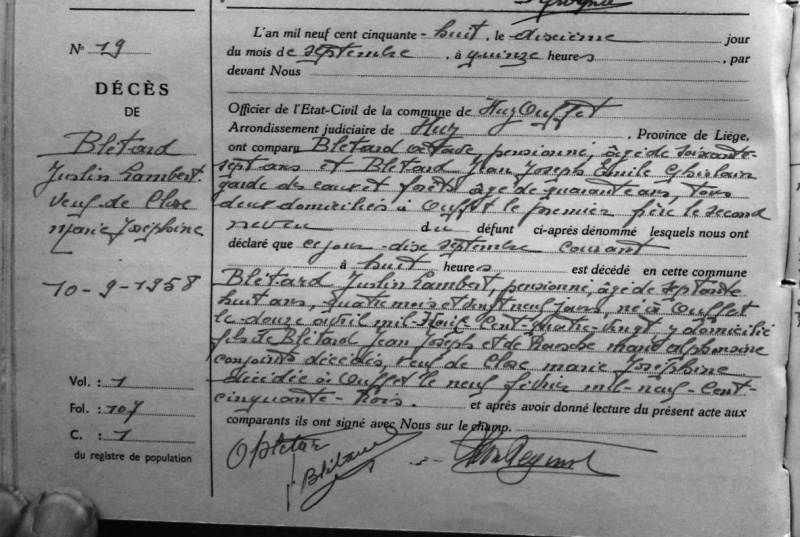 N° 19
DÉCÈS
DE
Blétard
Justin Lambert.
veuf de Close
Marie Joséphine
10-9-1958
Vol. : 1
Fol. : 107
C. : 1
du registre de population
L'an mil neuf cent cinquante-huit, le dixième jour
du mois de septembre, à quinze heures, par
devant Nous
Officier de l'Etat-Civil de la commune de Ouffet
Arrondissement judiciaire de Huy, Province de Liège,
ont comparu Blétard octave, pensionné, âgé de soixante
sept ans et Blétard Jean Joseph Emile Ghislain
garde des eaux et forêts âgé de quarante ans, tous
deux domiciliés à Ouffet le premier frère le second
neveu du défunt ci-après dénommé lesquels nous ont
déclaré que ce jour dix septembre courant
à huit heures est décédé en cette commune
Blétard Justin Lambert, pensionné, âgé de septante
huit ans, quatre mois et vingt neuf jours, né à Ouffet
le douze avril mil-huit-cent-quatre-vingt y domicilié
fils de Blétard Jean Joseph et de marie alphonsine
conjoints décédés veuf de Close marie Joséphine
décédée à Ouffet le neuf février mil-neuf-cent-
cinquante-trois. et après avoir donné lecture du présent acte aux
comparants ils ont signé avec Nous sur le champ.
O Bletar
Blétard